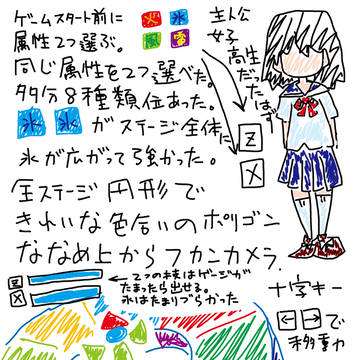 ゲームスタート前に
属性2つ選ぶ。
火 氷
風 雷
主人公
女子高生
だったはず
同じ属性を2つ選べた。
多分8種類位あった。
氷 氷 がステージ全体に
氷が広がって強かった。
Z
X
全ステージ円形で
きれいな色合いのポリゴン
ななめ上からフカンカメラ.
Z
X
←2つの技はゲージが
たまったら出せる。
氷はたまりづらかった
十字キー
←→で
移動